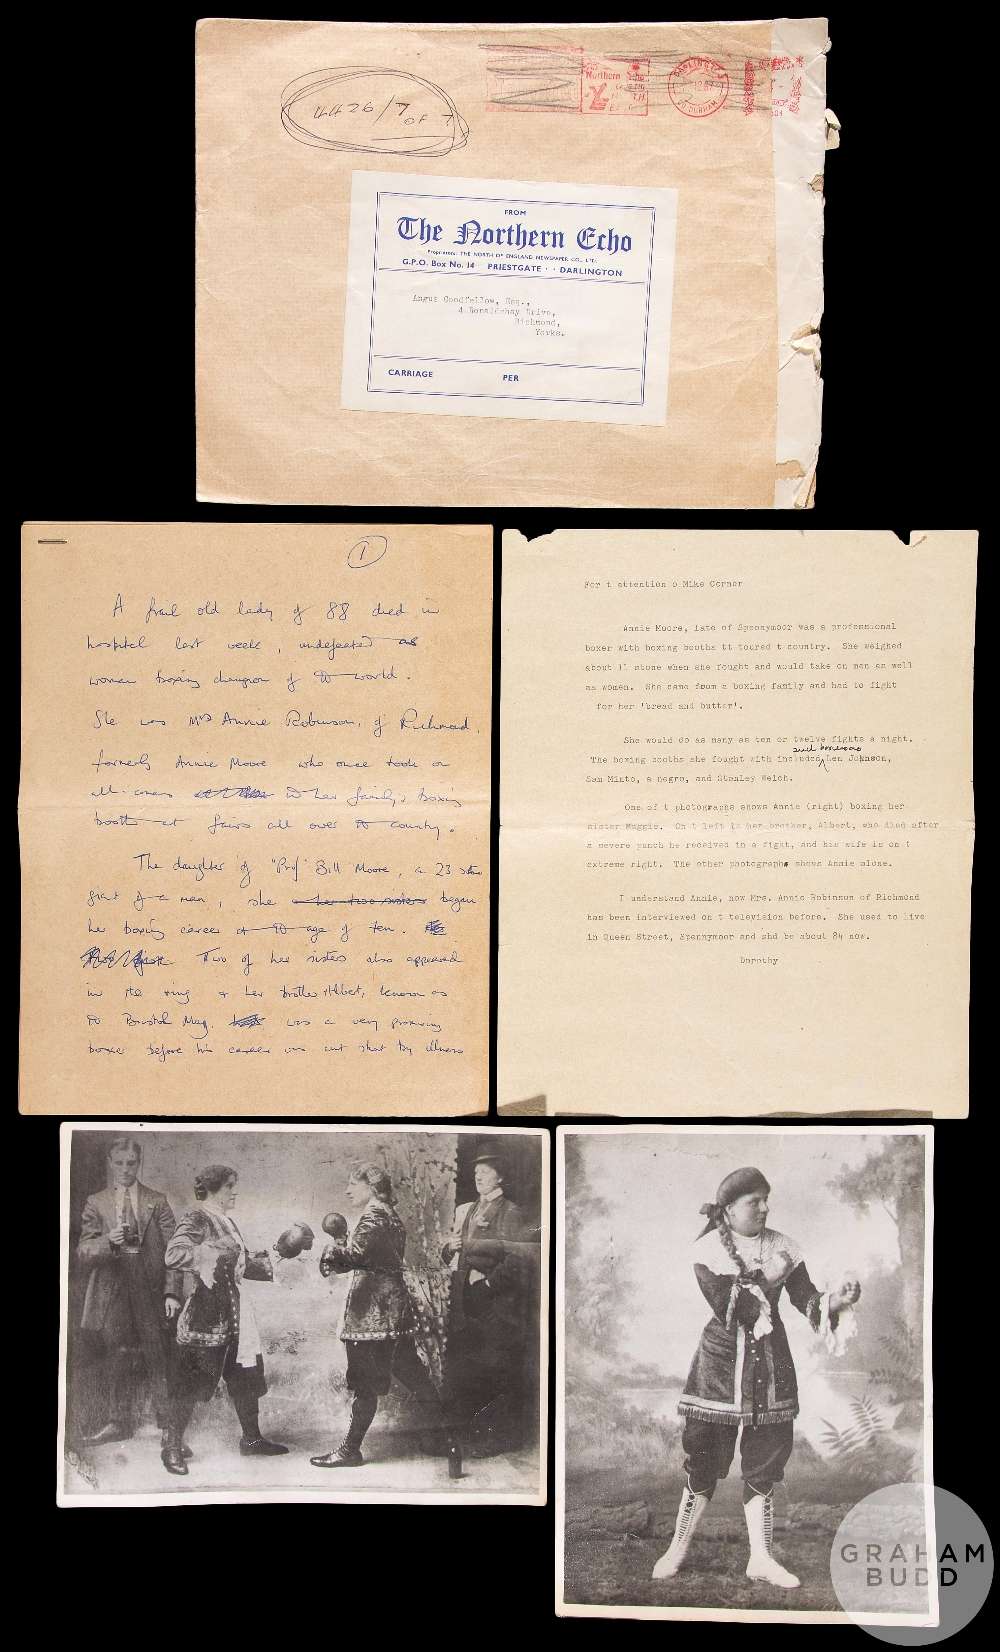 4426/7 OF 7
Northern Echo
DARLINGTON
CO DURHAM
FROM
The Northern Echo
Proprietors: THE NORTH OF ENGLAND NEWSPAPER CO., LTD.
G.P.O. Box No. 14 PRIESTGATE · · DARLINGTON
Angus Goodfellow, Esq.,
4 Ronaldshay Drive,
Richmond,
Yorks.
CARRIAGE PER
1
A frail old lady of 88 died in
hospital last week, undefeated as
woman boxing champion of the world.
She was Mrs Annie Robinson, of Richmond,
formerly Annie Moore who once took on
all-comers in her family's boxing
booth at fairs all over the country.
The daughter of "Prof" Bill Moore, a 23 stone
giant of a man, she her two sisters began
her boxing career at the age of ten.
Two of her sisters also appeared
in the ring & her brother Albert, known as
the Bristol Meg. was a very promising
boxer before his career was cut short by illness
For t attention o Mike Corner
Annie Moore, late of Spennymoor was a professional
boxer with boxing booths tt toured t country. She weighed
about 11 stone when she fought and would take on men as well
as women. She came from a boxing family and had to fight
for her 'bread and butter'.
She would do as many as ten or twelve fights a night.
such boxers as
The boxing booths she fought with included Len Johnson,
Sam Minto, a negro, and Stanley Welch.
One of t photographs shows Annie (right) boxing her
sister Maggie. On t left is her brother, Albert, who died after
a severe punch he received in a fight, and his wife is on t
extreme right. The other photographs shows Annie alone.
I understand Annie, now Mrs. Annie Robinson of Richmond
has been interviewed on t television before. She used to live
in Queen Street, Spennymoor and shd be about 84 now.
Dorothy
GRAHAM
BUDD